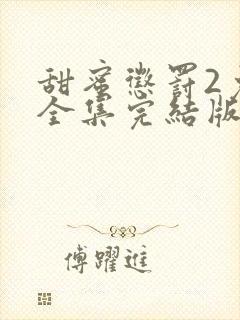 甜蜜懲罰2
全集完結版
傅躍進